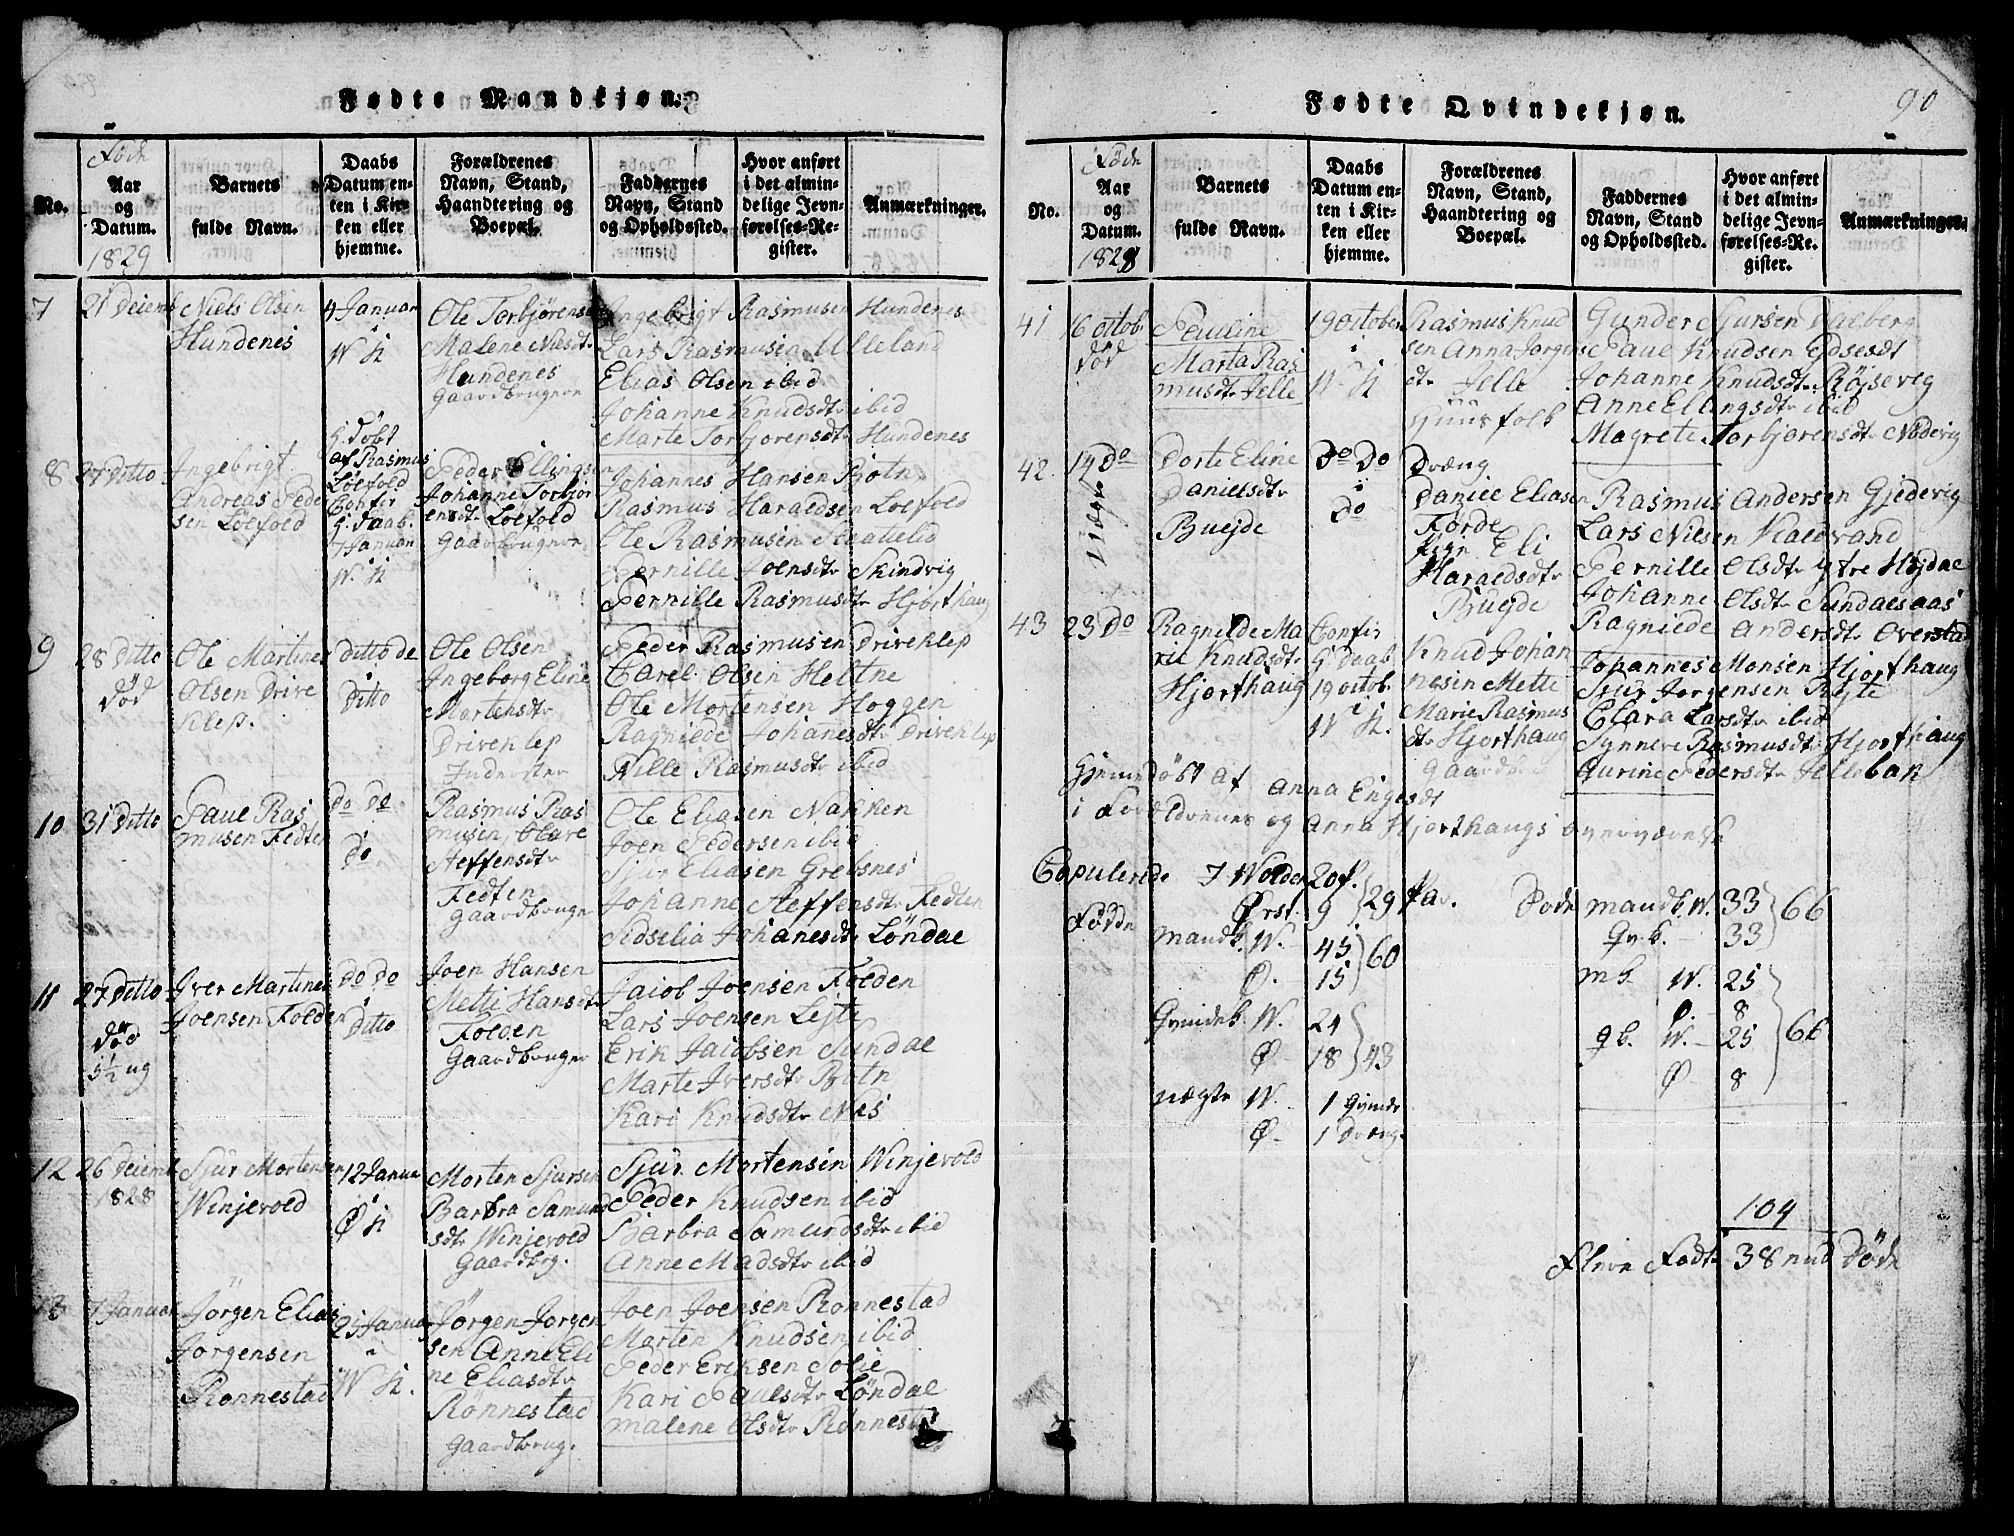 Fødte Mandkjøn.
No.
Føde
Aar
og
Datum.
1829
Barnets
fulde Navn.
Daabs
Datum en-
ten i Kir-
ken eller
hjemme.
Forældrenes
Navn, Stand,
Haandtering og
Boepæl.
Faddernes
Navn, Stand
og Opholdssted.
Hvor anført
i det almin-
delige Jevn-
førelses-Re-
gister.
Anmærkninger.
7
Niels Olsen
Hundenes
4 Januar
i
W K
Ole Torbjørens
Malene Nilsdtr
Hundenes
Gaardbrugere
Ingebrigt Rasmusen Hundenes
Lars Rasmusen Ulleland
Elias Olsen ibid
Johanne Knudsdtr ibid
Marte Torbjorensdtr Hundenes
8
27 Ditto
Ingebrigt
Andreas Pede
sen Loefold
H. Døbt
af Rasmus
Loefold
Confir
H. Daab
7 Januar
W. K
Peder Ellingsen
Johanne Torbjør
ensdtr Loefold
Gaardbrugere
Johannes Hansen Botn
Rasmus Haraldsen Loefold
Ole Rasmusen
Pernille Joensdtr Skindvig
Pernille Rasmusdtr Hjorthaug
9
28 Ditto
død
Ole Martines
Olsen Drive
klep.
Ditto de
i
Ditto
Ole Olsen
Ingeborg Eline
Mortensdtr
Driveklep
Inderster
Peder Rasmusen Driveklep
Carel Olsen Heltne
Ole Mortensen Hoggen
Ragnilde Johanesdtr Driveklep
Nille Rasmusdtr ibid
10
31 Ditto
Paul Ras
musen Fedten
Do De
i
Do
Rasmus Ras
musen, Olave
Steffensdtr
Fedten
Gaardbruger
Ole Eliasen Nakken
Joen Pedersen ibid
Sjur Eliasen Grebsnes
Johanne Steffensdtr Fedten
Sidselia Johanesdtr Løndal
11
27 Ditto
død
5½ ug
Iver Martines
Joensen Folden
Do Do
i
Ditto
Joen Hansen
Mette Hansdtr
Folden
Gaardbruger
Jacob Joensen Folden
Lars Joensen Lejte
Erik Jacobsen Sundal
Marte Iversdtr Botn
Kari Knudsdtr Næs
12
1828
Sjur Mortensen
Winjevold
12 Janua
i
Ø K
Morten Sjursen
Barbra Samund
sdtr Winjevold
Gaardbrg.
Sjur Mortensen Winjevold
Peder Knudsen ibid
Barbra Samundsdtr ibid
Anne Madsdtr ibid
13
7 Januar
Jørgen Elias
Jørgensen
Rønnestad
25 Januar
i
W K.
Jørgen Jorgen
sen Anne Eli
ne Eliasdtr
Rønnestad
Gaardbrug.
Joen Joensen Rønnestad
Morten Knudsen ibid
Peder Eriksen Folie
Kari Paulsdtr Løndal
Malene Olsdtr Rønnest
Fødte Qvindekjøn.
90
No.
Føde
Aar
og
Datum.
1828
Barnets
fulde Navn.
Daabs
Datum en-
ten i Kir-
ken eller
hjemme.
Forældrenes
Navn, Stand,
Haandtering og
Boepæl.
Faddernes
Navn, Stand
og Opholdssted.
Hvor anført
i det almin-
delige Jevn-
førelses-Re-
gister.
Anmærkninger.
41
16 octob.
død
Pauline
Marta Ras
musdtr Jelle
19 octobr
i
W K
Rasmus Knud
sen Anna Jorgens
dtr Jelle
Huusfolk
Gunder Sjursen Dalberg
Paul Knudsen Eidsesdt
Johanne Knudsdtr Røjsevig
Anne Ellingsdtr ibid
Magrete Torbjørensdtr Nødvig
42
14 Do
Uægte
Dorte Eline
Danielsdtr
Buejde
Do Do
i
Do
Dreng
Daniel Eliasen
Førde
Pige Eli
Haraldsdtr
Buejde
Rasmus Andersen Gjedevig
Lars Nilsen Kaldvand
Pernille Olsdtr ytre Højdal
Johanne Olsdtr Sundalsaas
Ragnilde Andersdtr Overstad
43
23 Do
Ragnilde Ma
rie Knudsdtr
Hjorthaug
Confir
H. Daab
19 octob.
i
W K.
Knud Johan
nesen Mette
Marie Rasmus
dtr Hjorthaug
Gaardb
Johannes Monsen Hjorthaug
Sjur Jørgensen Rejte
Clara Larsdtr ibid
Synneve Rasmusdtr Hjorthaug
Gurine Pedersdtr Jellebak
Hjemmedøbt af Anna Engesdt
i Forældrenes og Anna Hjorthaugs overværelse
Copulerede 7 Wolden 20 p.
Ørst. 9 } 29 Par.
Fødde
mandk. W. 45
Ø. 15 } 60
Qvindek W. 24
Ø 18 } 43
uægte W. 1 Qvinde
Ø. 1 Dreng.
Døde mandk. W. 33
Qv.k. 33 } 66
m k W. 25
Ø. 8
qk. W. 25
Ø 8 } 66
104
Flere Fødte 38 end Døde